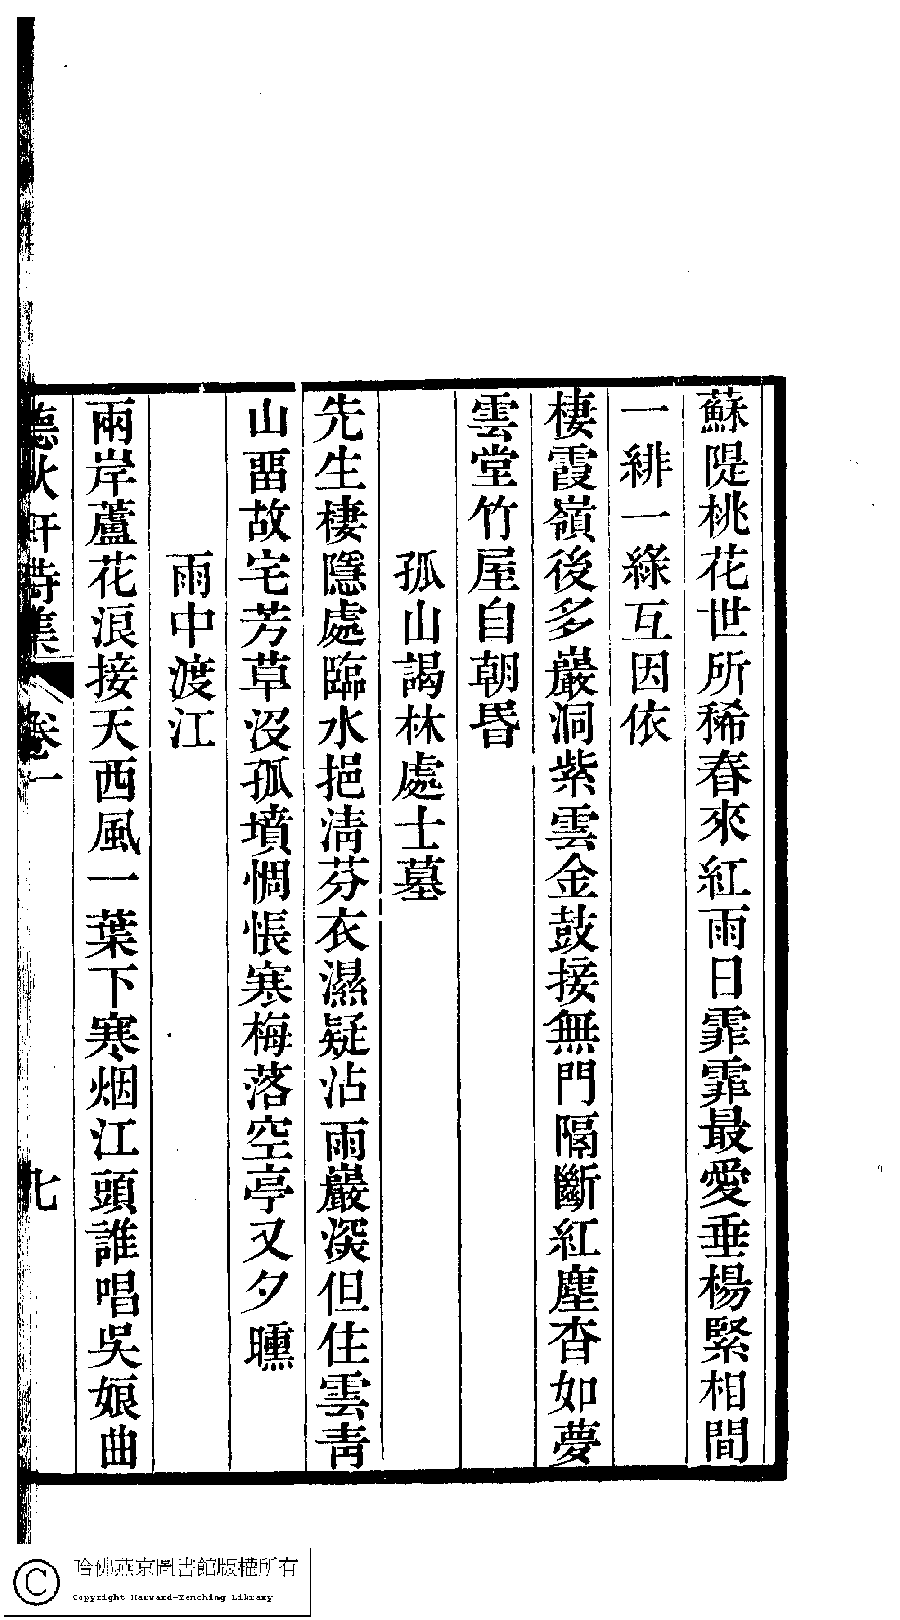 蘇隄桃花世所稀春來紅雨日霏霏最愛垂楊緊相間
一緋一綠互因依
棲霞嶺後多巖洞紫雲金鼓接無門隔斷紅塵杳如夢
雲堂竹屋自朝昏
孤山謁林處士墓
先生棲隱處臨水挹淸芬衣濕疑沾雨巖深但住雲靑
山畱故宅芳草没孤墳惆悵寒梅落空亭又夕曛
雨中渡江
兩岸蘆花浪接天西風一葉下寒烟江頭誰唱吳娘曲
聽秋軒詩集
卷一
七
哈佛燕京圖書館版權所有
Copyright Harvard-Yenching Library